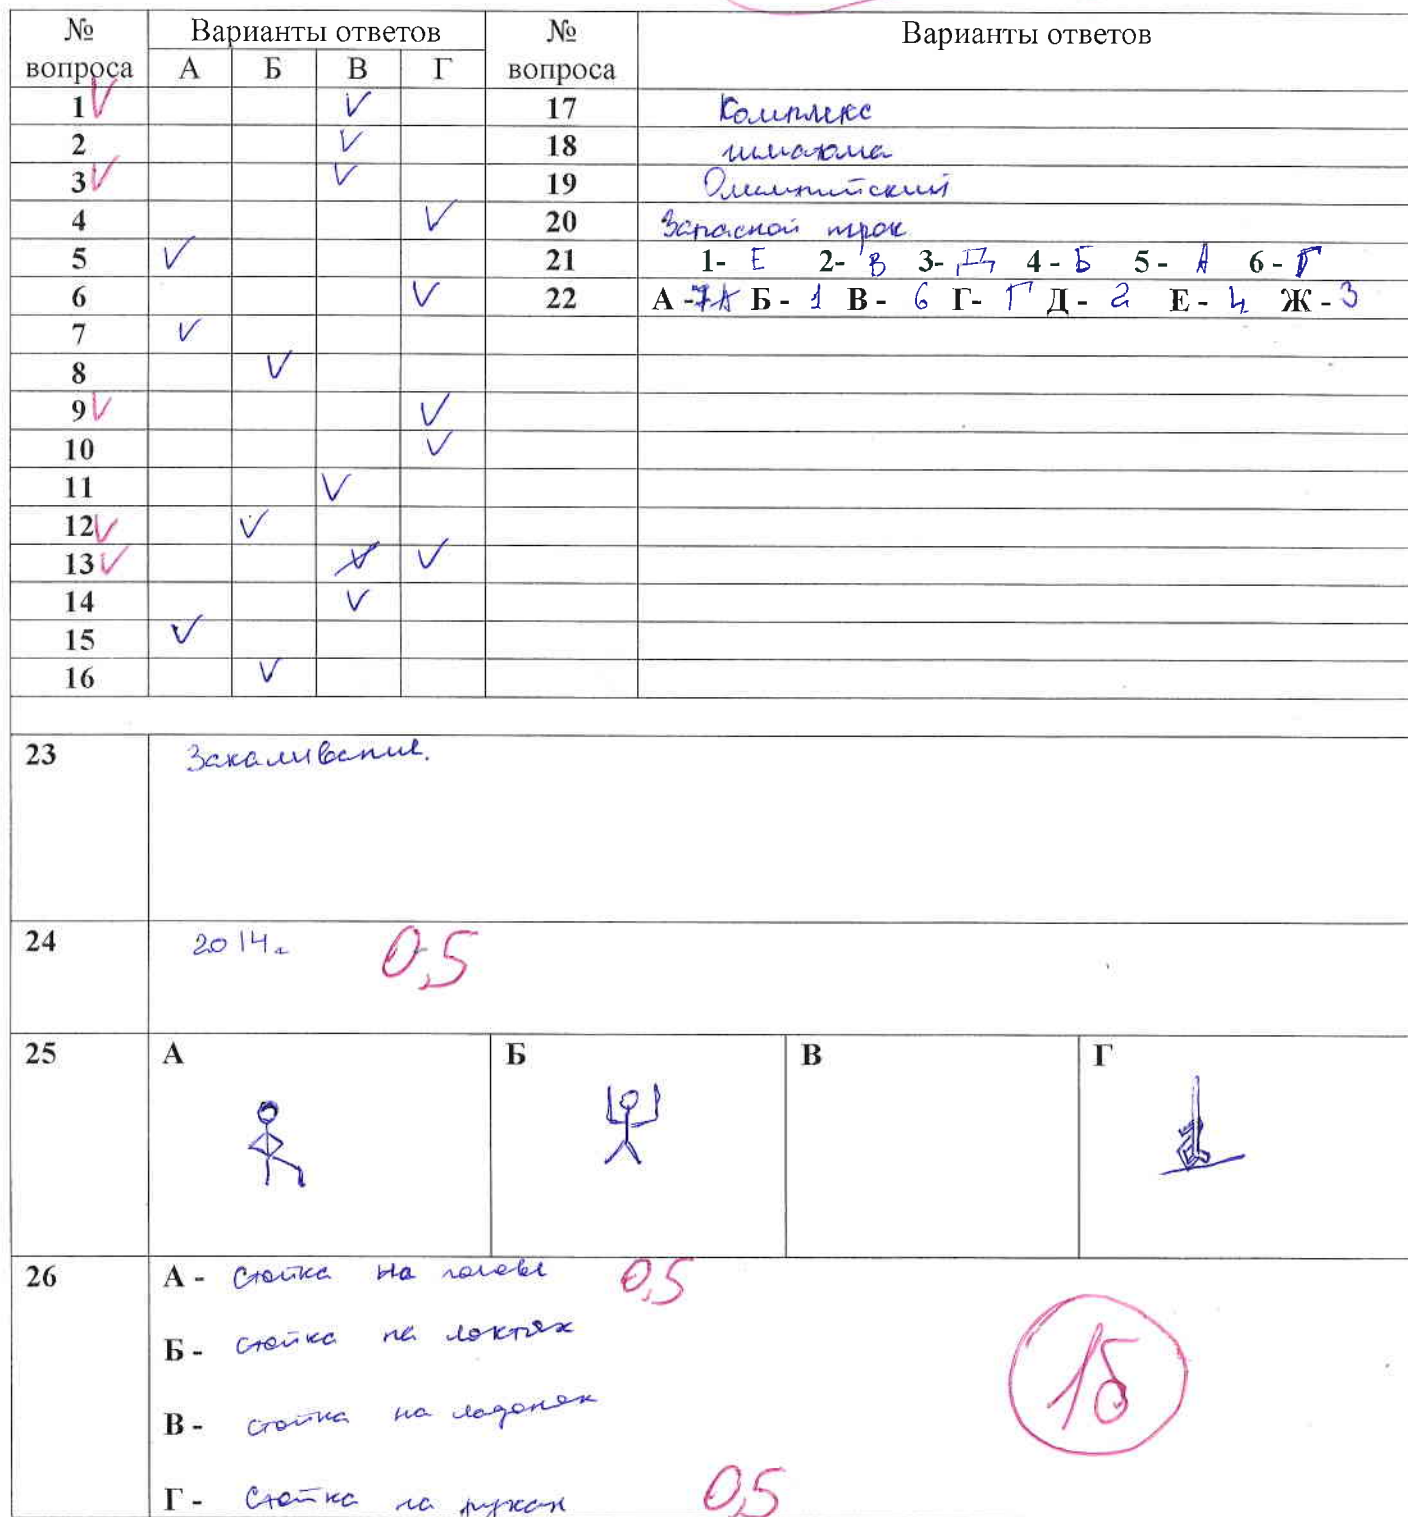 № вопроса Варианты ответов № вопроса Варианты ответов
А Б В Г
1 V V 17 Комплекс
2 V 18
3 V V 19 Олимпийский
4 V 20 Запасной трок
5 V 21 1- Е 2- В 3- Д 4 - Б 5 - А 6 - Г
6 V 22 А - Б - 1 В - 6 Г- Г Д - 2 Е - 4 Ж - 3
7 V
8 V
9 V V
10 V
11 V
12 V V
13 V V V
14 V
15 V
16 V
23 Закаливание.
24 2014г 0,5
25 А Б В Г
26 А - Стойка на голове 0,5
Б - стойка на локтях
В - стойка на ладонях
Г - Стойка на руках 0,5